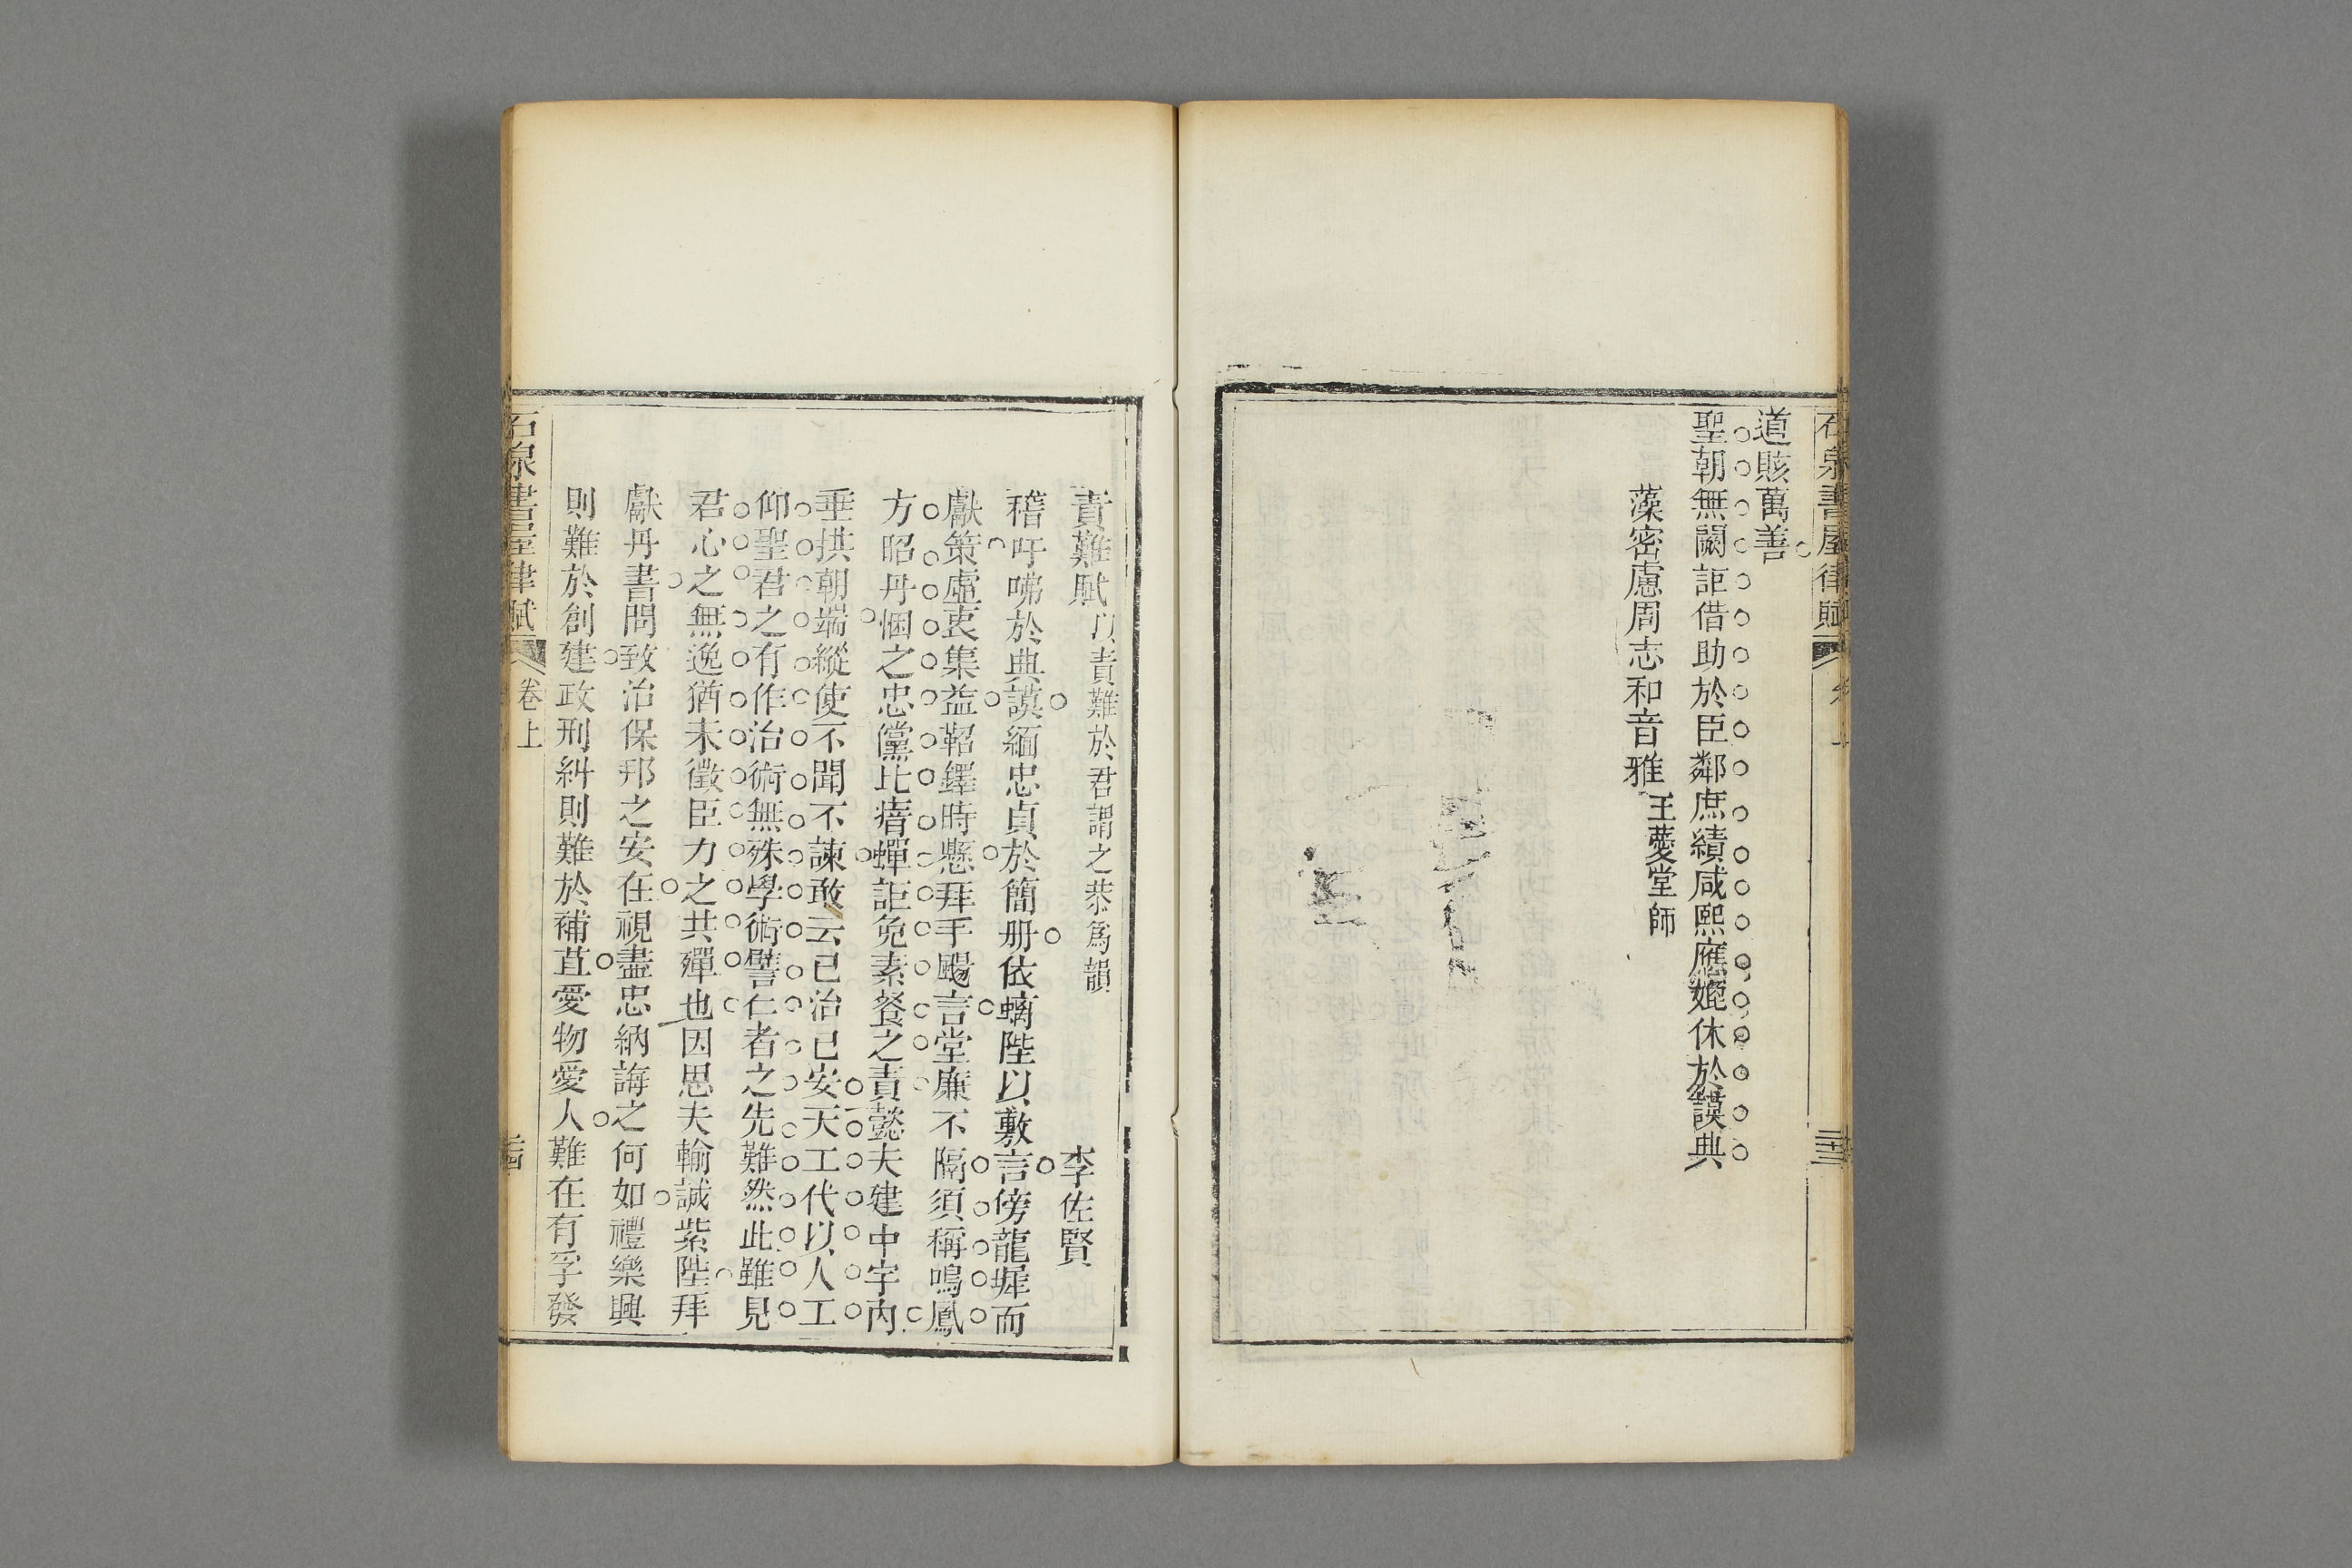 道賅萬善
聖朝無闕詎借助於臣鄰庶績咸熙應媲休於謨典
藻密慮周志和音雅王薆堂師
責難賦以責難於君謂之恭爲韻
李佐賢
稽吁咈於典謨緬忠貞於簡册依螭陛以敷言傍龍墀而
獻策虛衷集益鞀鐸時懸拜手颺言堂廉不隔須稱鳴鳳
方昭丹悃之忠儻比瘖蟬詎免素餐之責懿夫建中宇內
垂拱朝端縱使不聞不諫敢云已治已安天工代以人工
仰聖君之有作治術無殊學術譬仁者之先難然此雖見
君心之無逸猶未徵臣力之共殫也因思夫輸誠紫陛拜
獻丹書問致治保邦之安在視盡忠納誨之何如禮樂興
則難於創建政刑糾則難於補苴愛物愛人難在有孚發
石泉書屋律賦
卷上